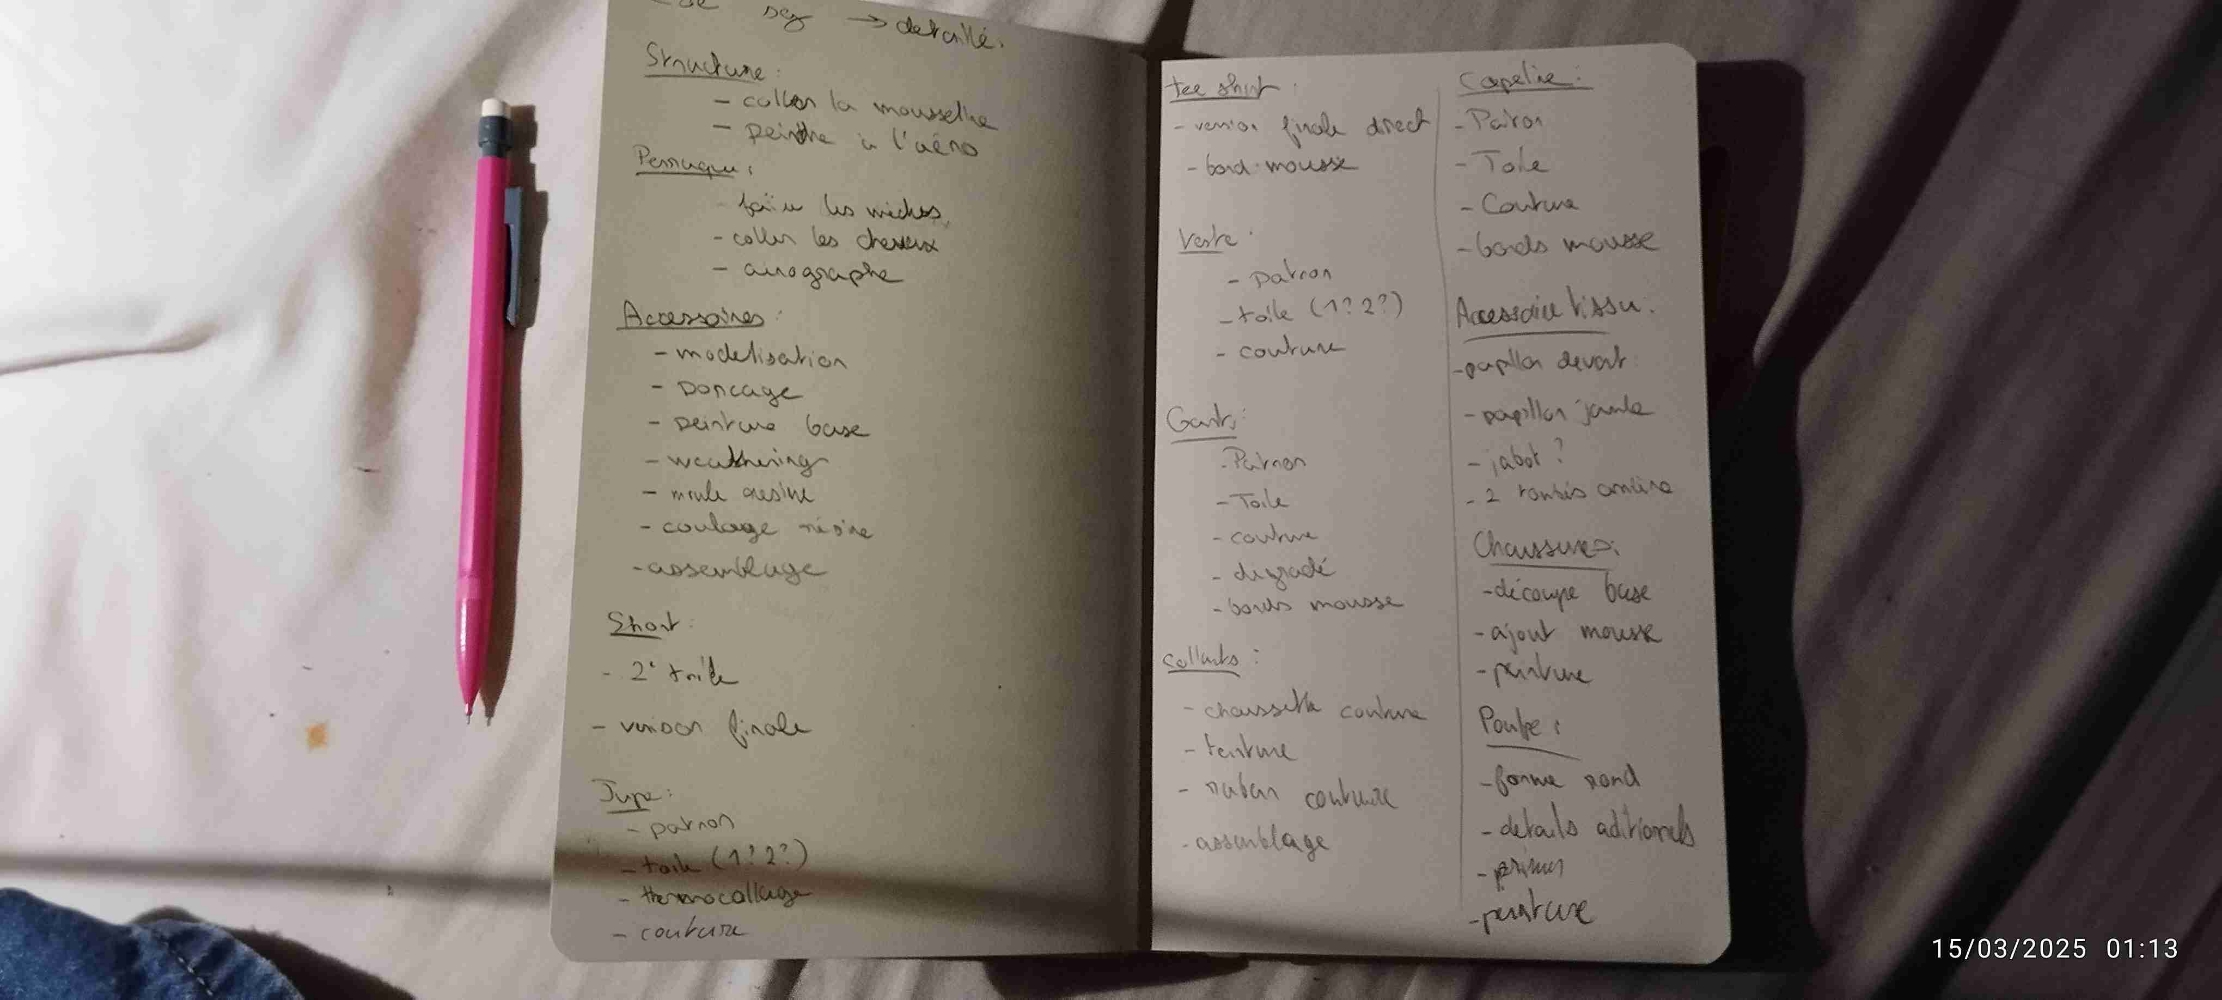 → détaillé.
Structure:
- coller la mousseline
- peindre à l'aéro
Perruque:
- faire les mèches
- coller les cheveux
- aérographe
Accessoires:
- modelisation
- poncage
- peinture base
- weathering
- moule resine
- coulage résine
- assemblage
Short:
- 2e toile
- version finale
Jupe:
- patron
- toile (1? 2?)
- thermocollage
- couture
tee shirt:
- version finale direct
- bord mousse
Veste:
- patron
- toile (1? 2?)
- couture
Gants:
- Patron
- Toile
- couture
- dégradé
- bords mousse
collants:
- chaussette couture
- teinture
- ruban couture
- assemblage
Capeline:
- Patron
- Toile
- Couture
- bords mousse
Accessoire tissu:
- papillon devant
- papillon jambe
- jabot?
- 2 tombés arrière
Chaussures:
- découpe base
- ajout mousse
- peinture
Poulpe:
- forme rond
- details aditionnels
- primer
- peinture
15/03/2025 01:13